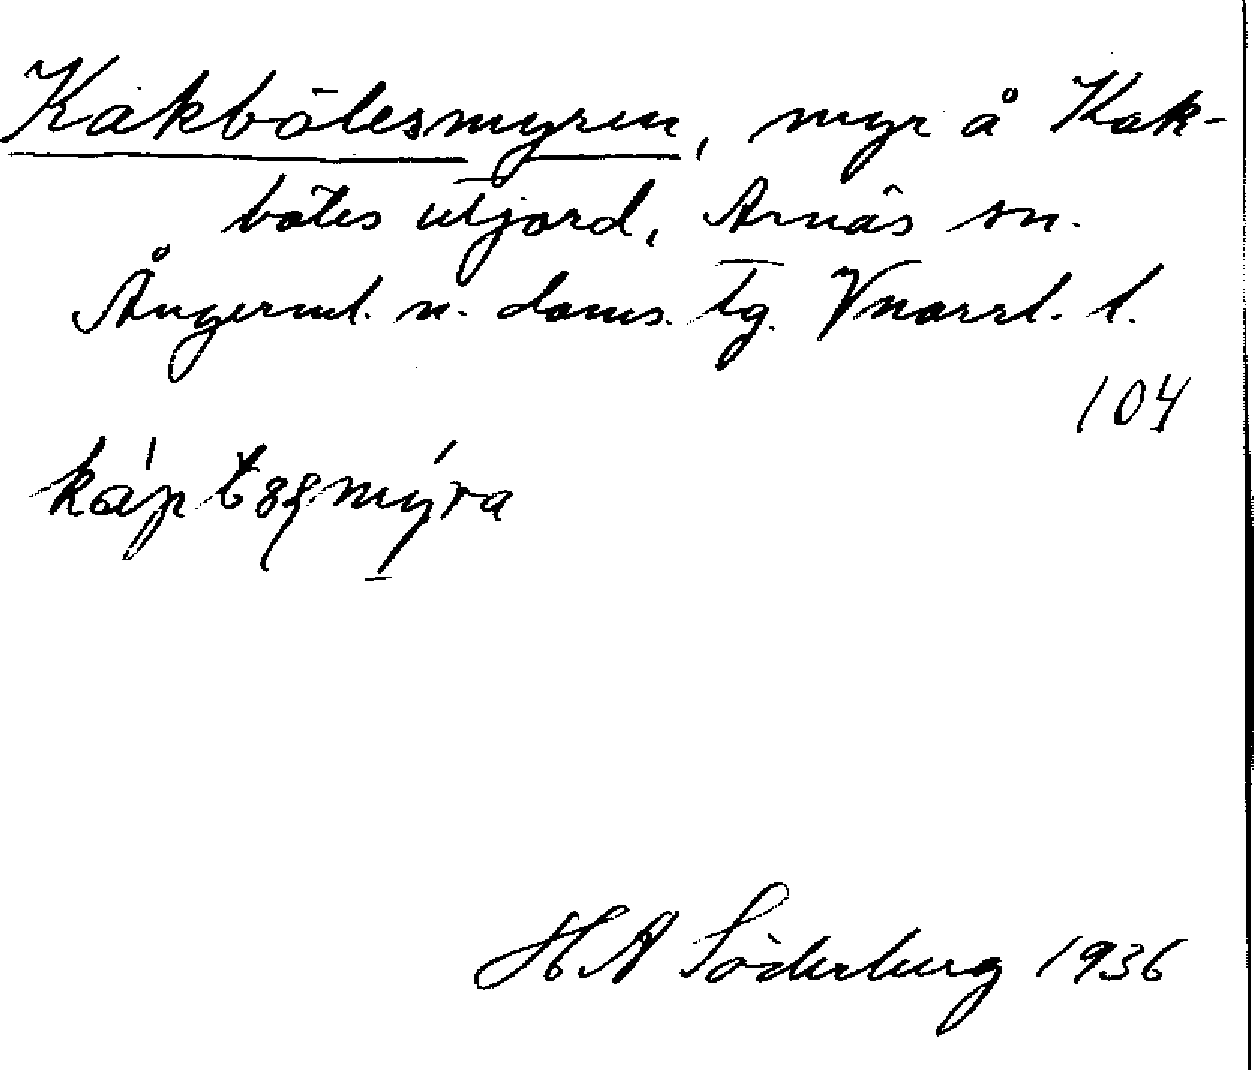 Kakbölesmyren, myr å Kak-
böles utjord, Arnäs sn.
Ångerml. n. doms. tg. Vnorrl. l.
104
H A Söderberg 1936